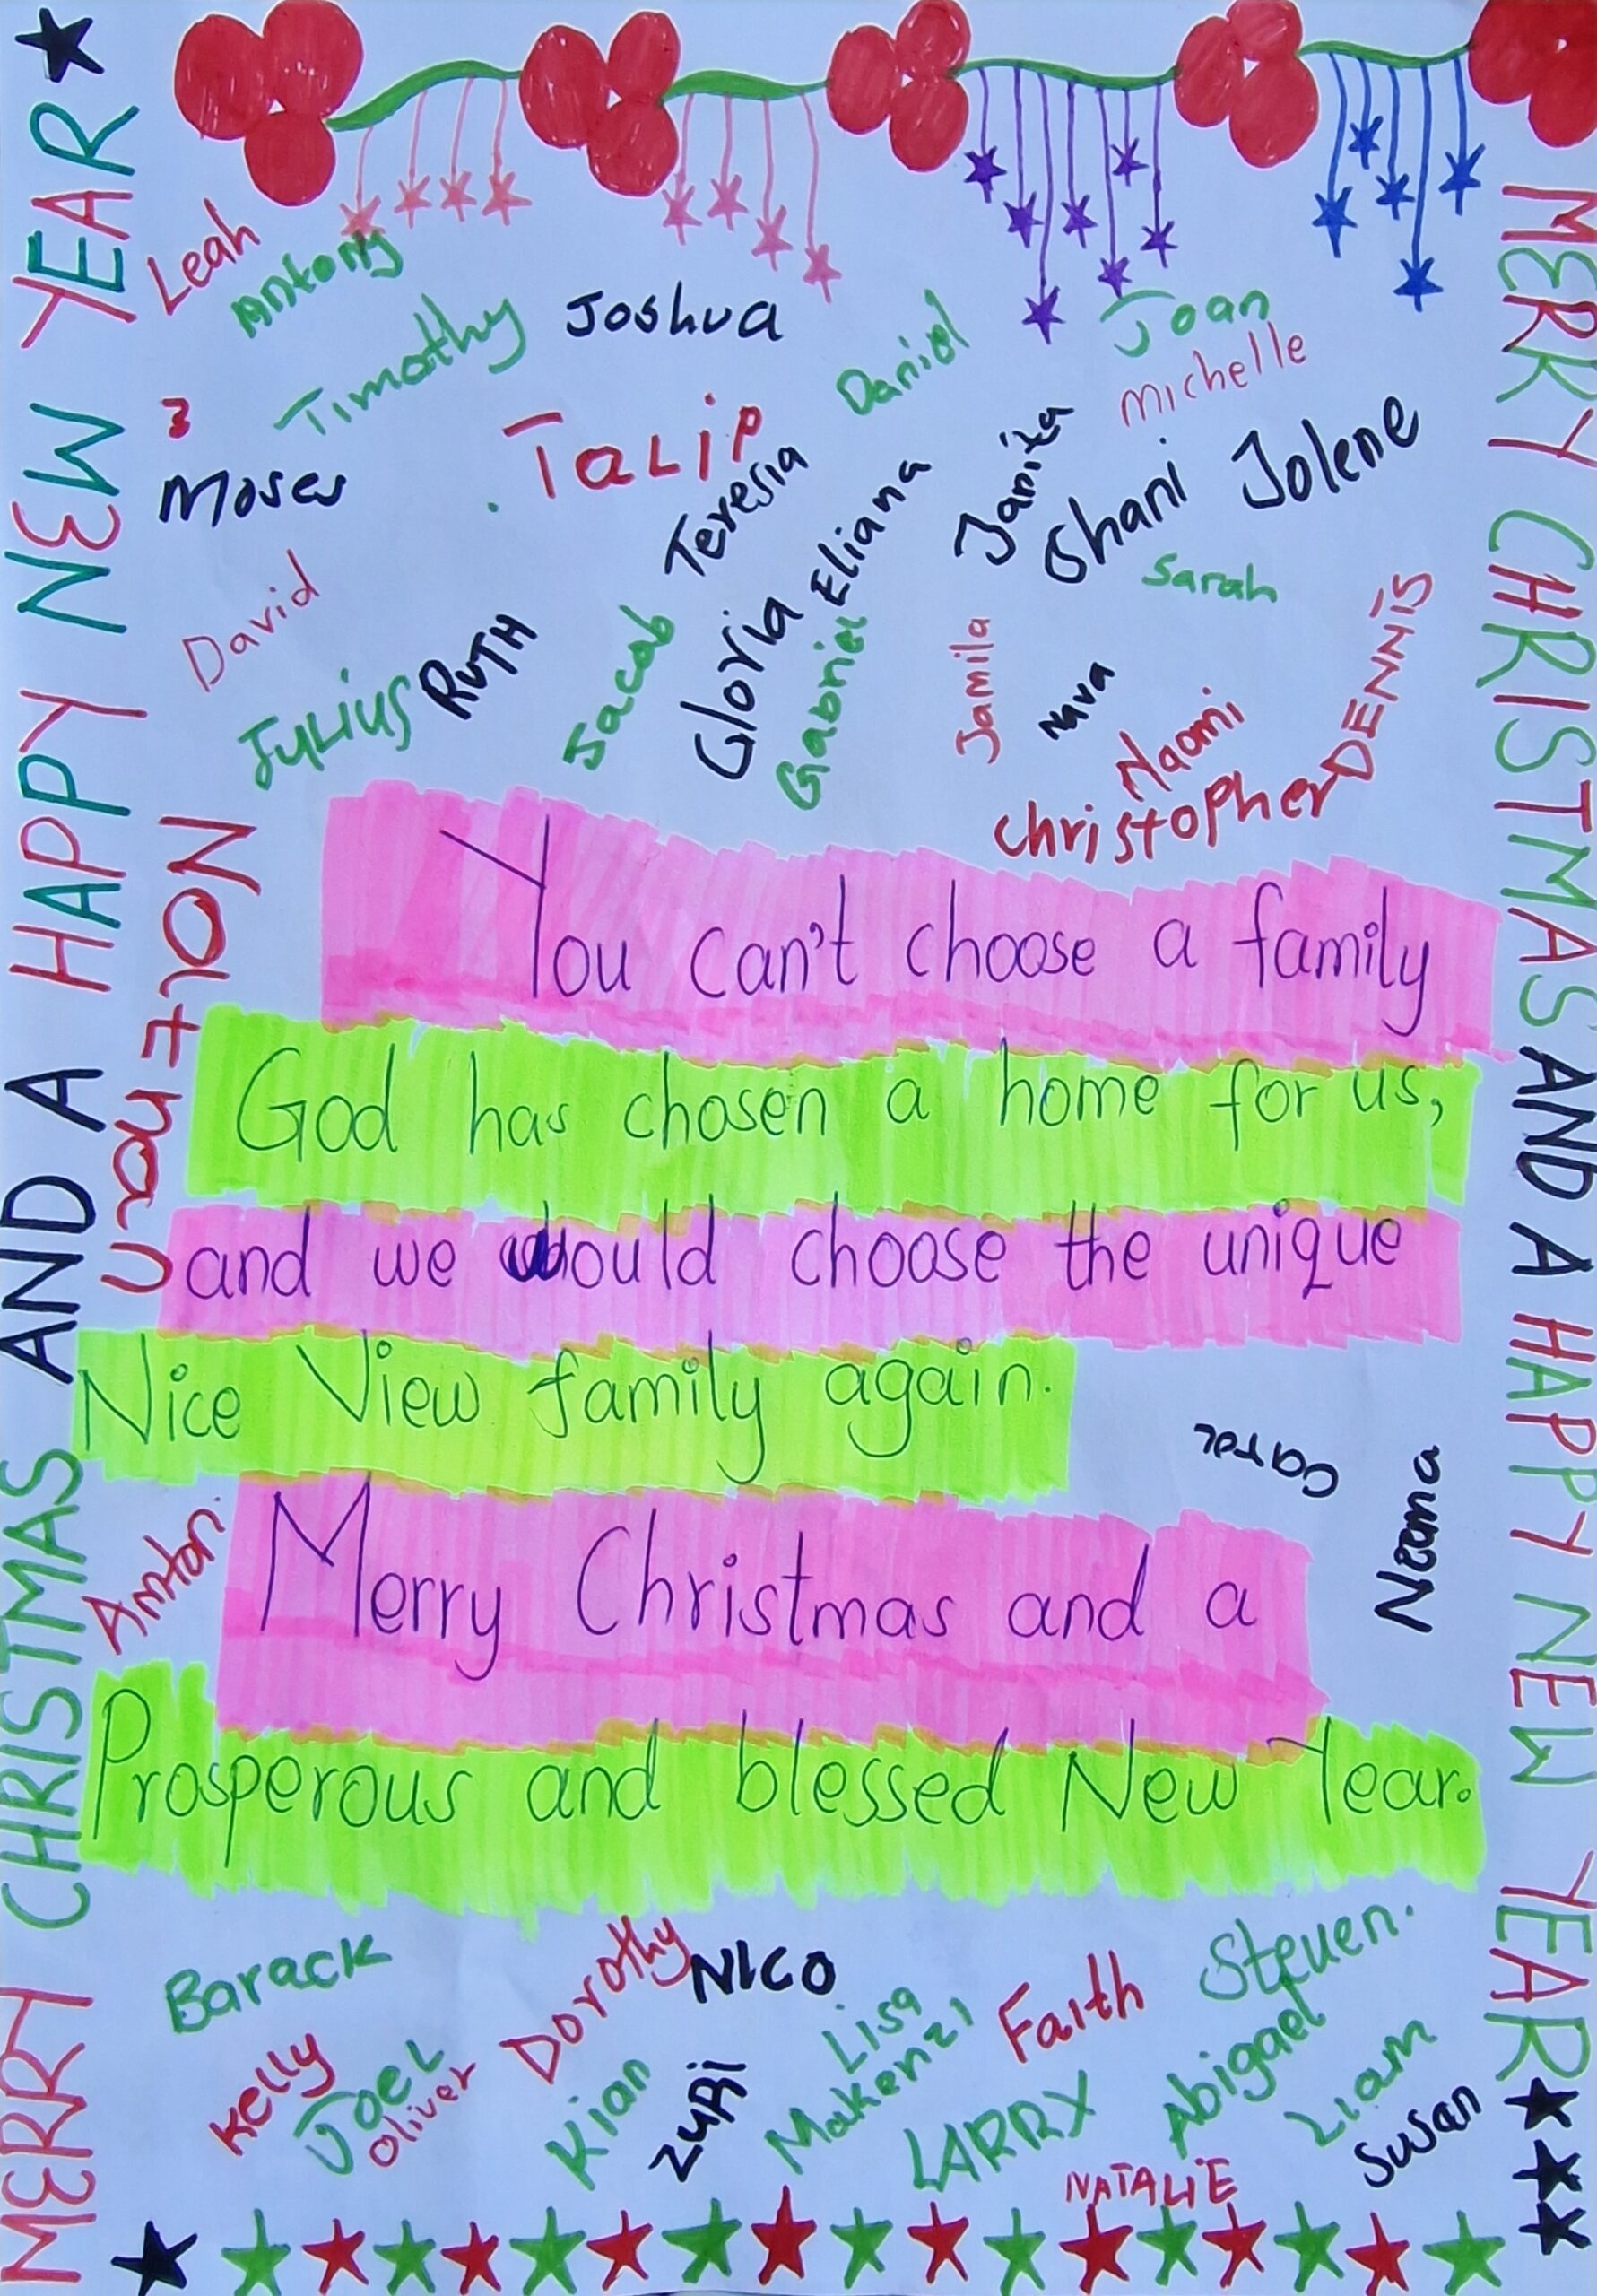 MERRY CHRISTMAS AND A HAPPY NEW YEAR
MERRY CHRISTMAS AND A HAPPY NEW YEAR
Leah
Antony
Timothy
Joshua
Daniel
Joan
michelle
Moses
TaLiP
Teresia
Eliana
Janita
Shani
Jolene
Sarah
David
Julius
RUTH
Jacob
Gloria
Gabriel
Jamila
Nava
Naomi
DENNIS
Christopher
You can't choose a family
God has chosen a home for us,
and we would choose the unique
Nice View family again.
Carol
Neema
Anton
Merry Christmas and a
Prosperous and blessed New Year.
Barack
Kelly
Joel
Oliver
Dorothy
NICO
Kian
ZuRi
Lisa
Makenzi
Faith
LARRY
Steven.
Abigael
Liam
Susan
NATALIE